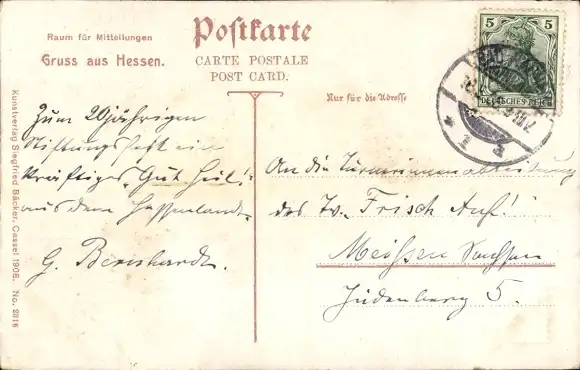 Postkarte
CARTE POSTALE
POST CARD.
Raum für Mitteilungen
Gruss aus Hessen.
Nur für die Adresse
5 5
DEUTSCHES REICH
Zum 20jährigen
Stiftungsfest ein
kräftiges „Gut Heil!"
aus dem Hessenlande
G. Bernhardt.
An die Turnerinnenabteilung
des Tv. „Frisch Auf!"
Meißen Sachsen
Jüdenberg 5.
Kunstverlag Siegfried Bäcker, Cassel 1906. No. 2816